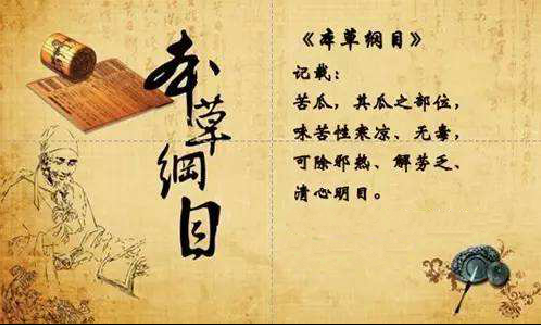 本草纲目
《本草纲目》
记载：
苦瓜，其瓜之部位，
味苦性寒凉、无毒，
可除邪热、解劳乏、
清心明目。